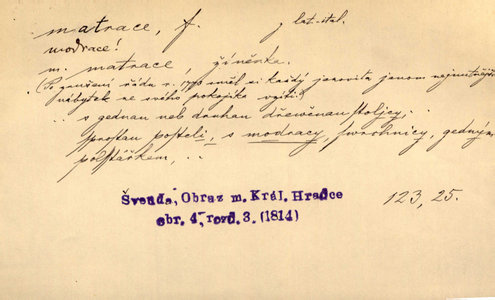 matrace, f. z lat.-ital.
modrace!
m. matrace žíněnka.
(Po zrušení řádu r. 1773 směl si každý jesovita jenom nejnutnější
nábytek ze svého pokojíka vzíti:)
.. s gednau neb druhau dřewěnau stoljcy, ..
sprostau postelj, s modracy, swrchnicy, gednjm
polsstářkem, ..
Švenda, Obraz m. Král. Hradce
obr. 4, rozd. 3. (1814)
123, 25.